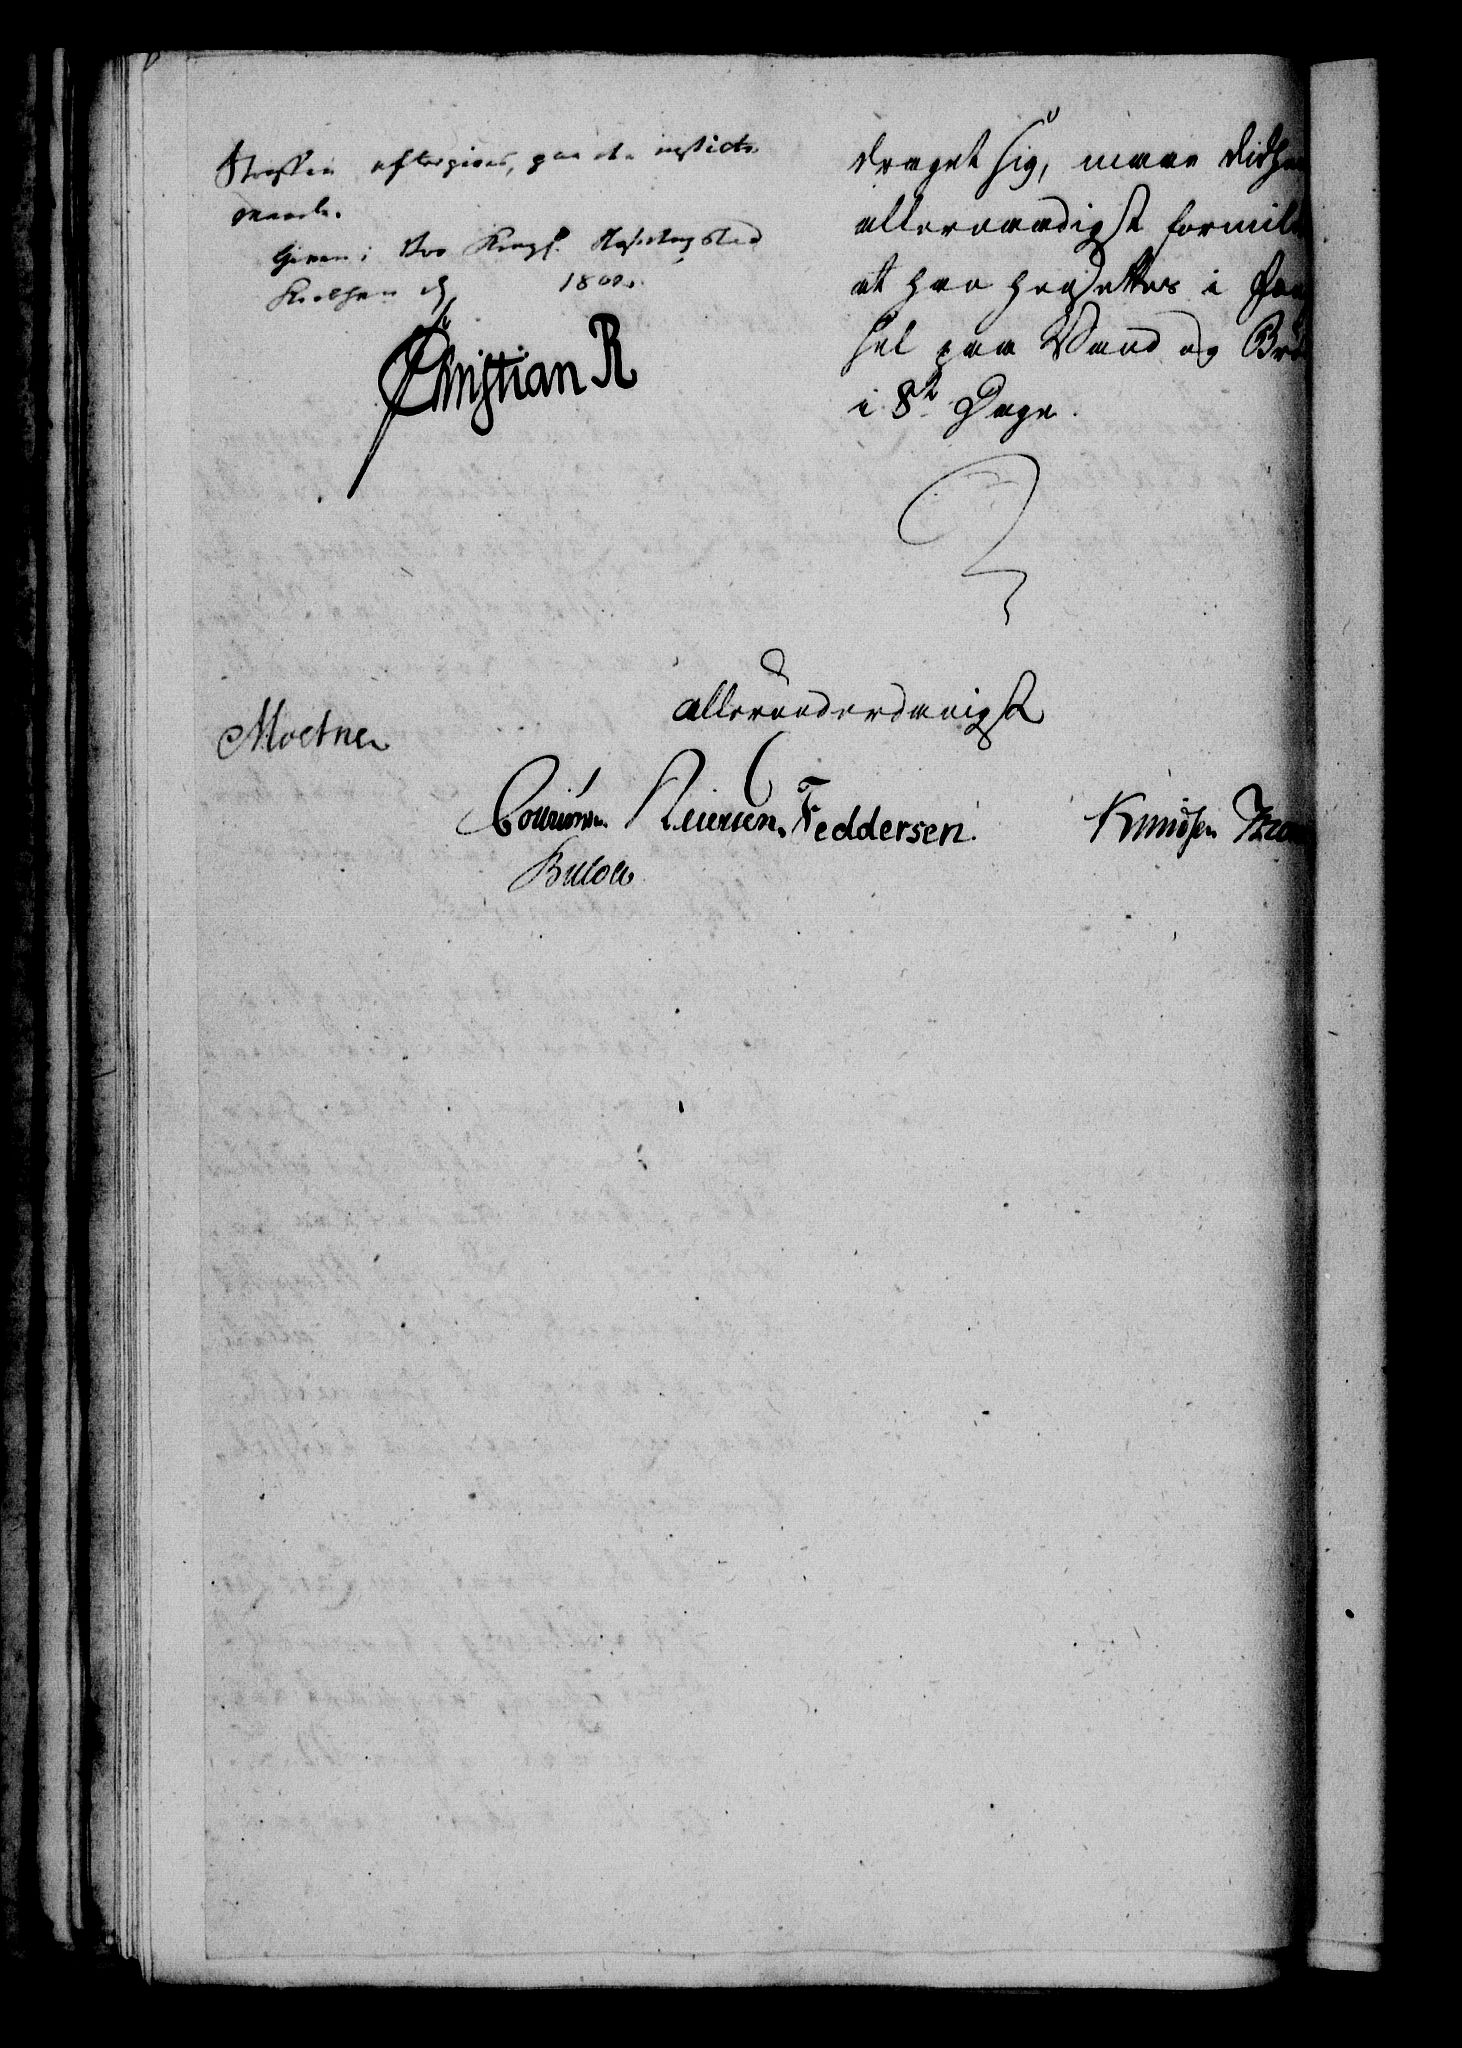 Straffen eftergives, paa den indstilte
Maade.
Given i Vor Kongl. Residentzstad
Kiøbhavn d. 1800.
Christian R
draget sig, maae
allernaadigst formil
at han hensættes i Fæng
sel paa Vand og Brø
i 8te Dage.
allerunderdanigst
Moltner
Colbiørnsen. Reiersen. Feddersen. Knudsen
Bulow